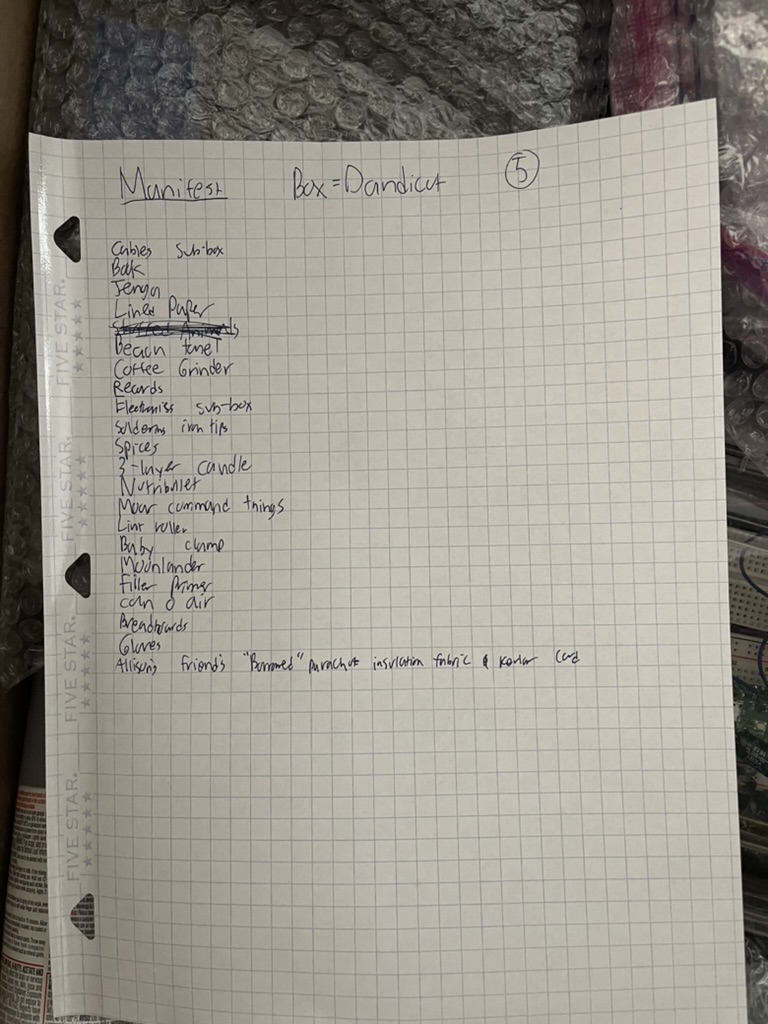 Manifest Box = Dandicut 5
Cables sub-box
Book
Jenga
Lined Paper
Stuffed Animals
Beach towel
Coffee Grinder
Records
Electronics sub-box
Soldering iron tips
Spices
3-layer candle
Nutribullet
Moar command things
Lint roller
Baby clamp
Moonlander
filler primer
can o air
Breadboards
Gloves
Allison's friend's "Borrowed" parachute insulation fabric & Kevlar
FIVE STAR.
FIVE STAR.
FIVE STAR.
FIVE STAR.